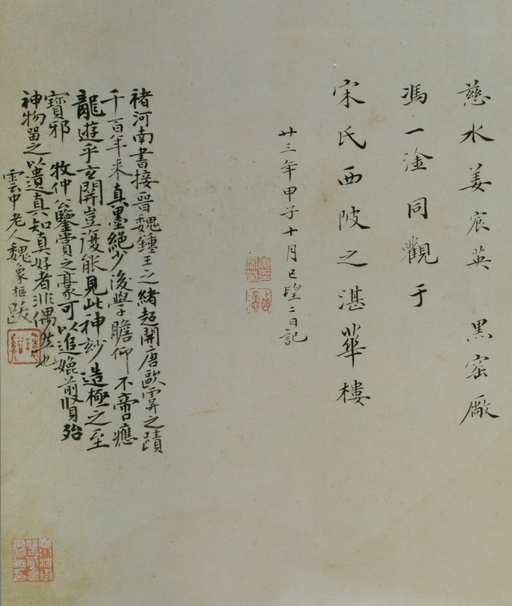 慈水姜宸英 黑窑厰
馮一淦同觀于
宋氏西陂之湛華樓
廿三年甲子十月已望二日記
褚河南書接晉魏鍾王之緒起開唐歐之蹟
千百年来真墨絕少後學瞻仰不啻
龍遊乎玄開豈復能見此神妙造極之至
寶邪 牧仲公鑒賞之豪可以追媲前賢殆
神物留之以遺真知真好者非偶然也
雲中老人魏象樞跋